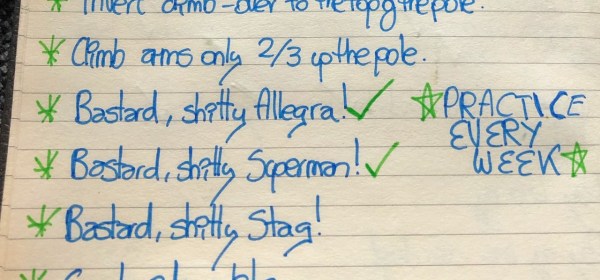 * Invert climb-over to the top of the pole.
* Climb arms only 2/3 up the pole.
* Bastard, shitty Allegra! ✓ ☆PRACTICE
EVERY
* Bastard, shitty Superman! ✓ WEEK☆
* Bastard, shitty Stag!